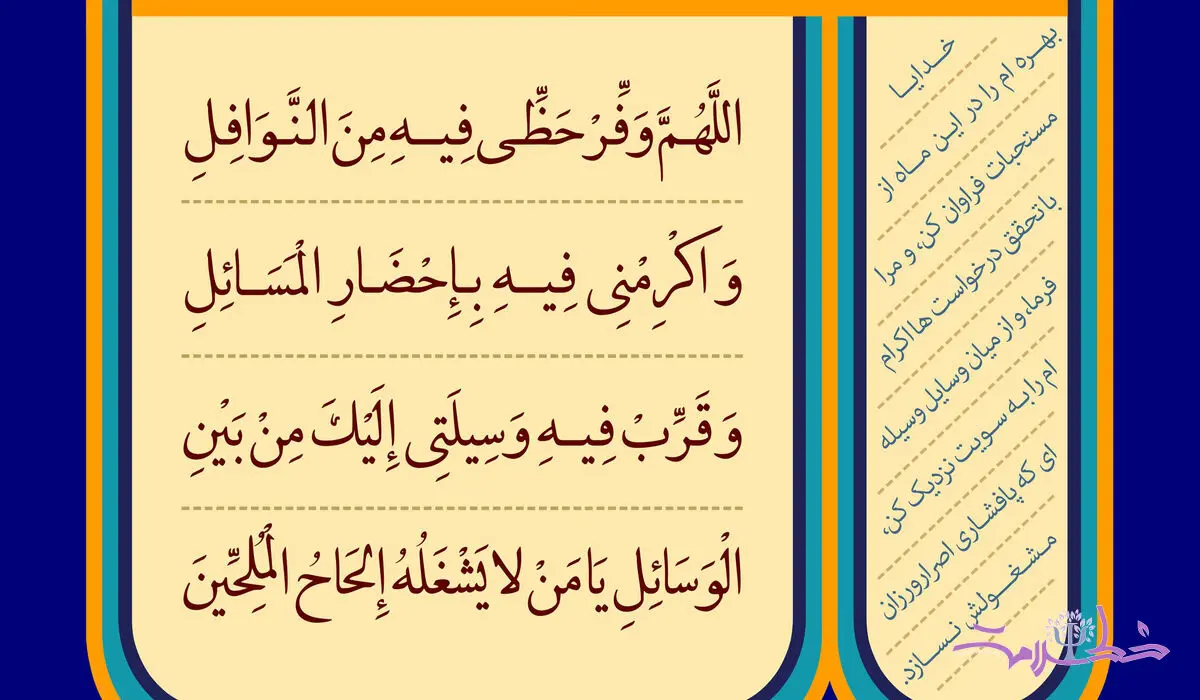 اللَّهُمَّ وَفِّرْ حَظِّی فِیهِ مِنَ النَّوَافِلِ
وَ اکْرِمْنِی فِیهِ بِإِحْضَارِ الْمَسَائِلِ
وَ قَرِّبْ فِیهِ وَسِیلَتِی إِلَیْكَ مِنْ بَیْنِ
الْوَسَائِلِ یَا مَنْ لا یَشْغَلُهُ إِلْحَاحُ الْمُلِحِّینَ
خدایا
بهره ام را در این ماه از
مستحبات فراوان کن، و مرا
با تحقق درخواست ها اکرام
فرما، و از میان وسایل وسیله
ام را به سویت نزدیک کن،
ای که پافشاری اصرارورزان
مشغولش نسازد.
خط سلامت